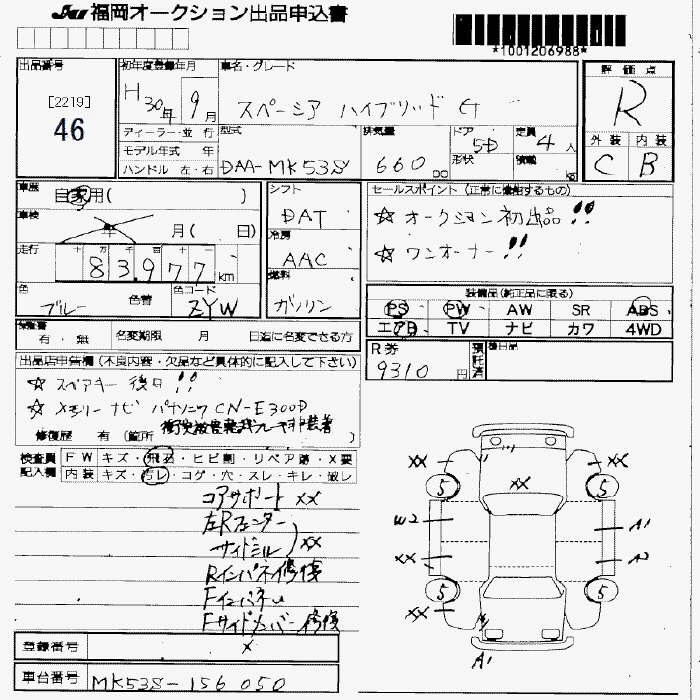 福岡オークション出品申込書
*1001206988*
出品番号
[2219]
46
初年度登録年月
H30年 9月
車名・グレード
スペーシア ハイブリッド G
評価点
R
外装 内装
C B
ディーラー・並行
モデル年式 年
ハンドル 左・右
型式
DAA-MK53S
排気量
660 cc
ドア
5D
形状
定員
4人
積載
kg
車歴
自家用( )
車検
年 月( 日)
走行
十 万 千 百 十
83,977 km
色
ブルー
色替
色コード
ZYW
シフト
DAT
冷房
AAC
燃料
ガソリン
セールスポイント (正常に機能するもの)
☆ オークション初出品!!
☆ ワンオーナー!!
装備品(純正品に限る)
PS PW AW SR ABS
エアB TV ナビ カワ 4WD
保証書
有・無
名変期限 月 日迄に名変できる方
R券
9310円
預託済
後日品
出品店申告欄 (不良内容・欠品など具体的に記入して下さい)
☆ スペアキー 後日!!
☆ メモリーナビ パナソニック CN-E300D
衝突被害軽減ブレーキ非装着
修復歴 有 (箇所 )
検査員記入欄
FW キズ・飛石・ヒビ割・リペア跡・X要
内装 キズ・汚レ・コゲ・穴・スレ・キレ・破レ
コアサポート XX
左Rフェンダー
サイドシル XX
Rインパネ修復
Fインパネ
Fサイドメンバー 修復
XX XX
XX
5 5
W2 A1
XX A2
5 5
XX
A1
登録番号
車台番号
MK53S-156050